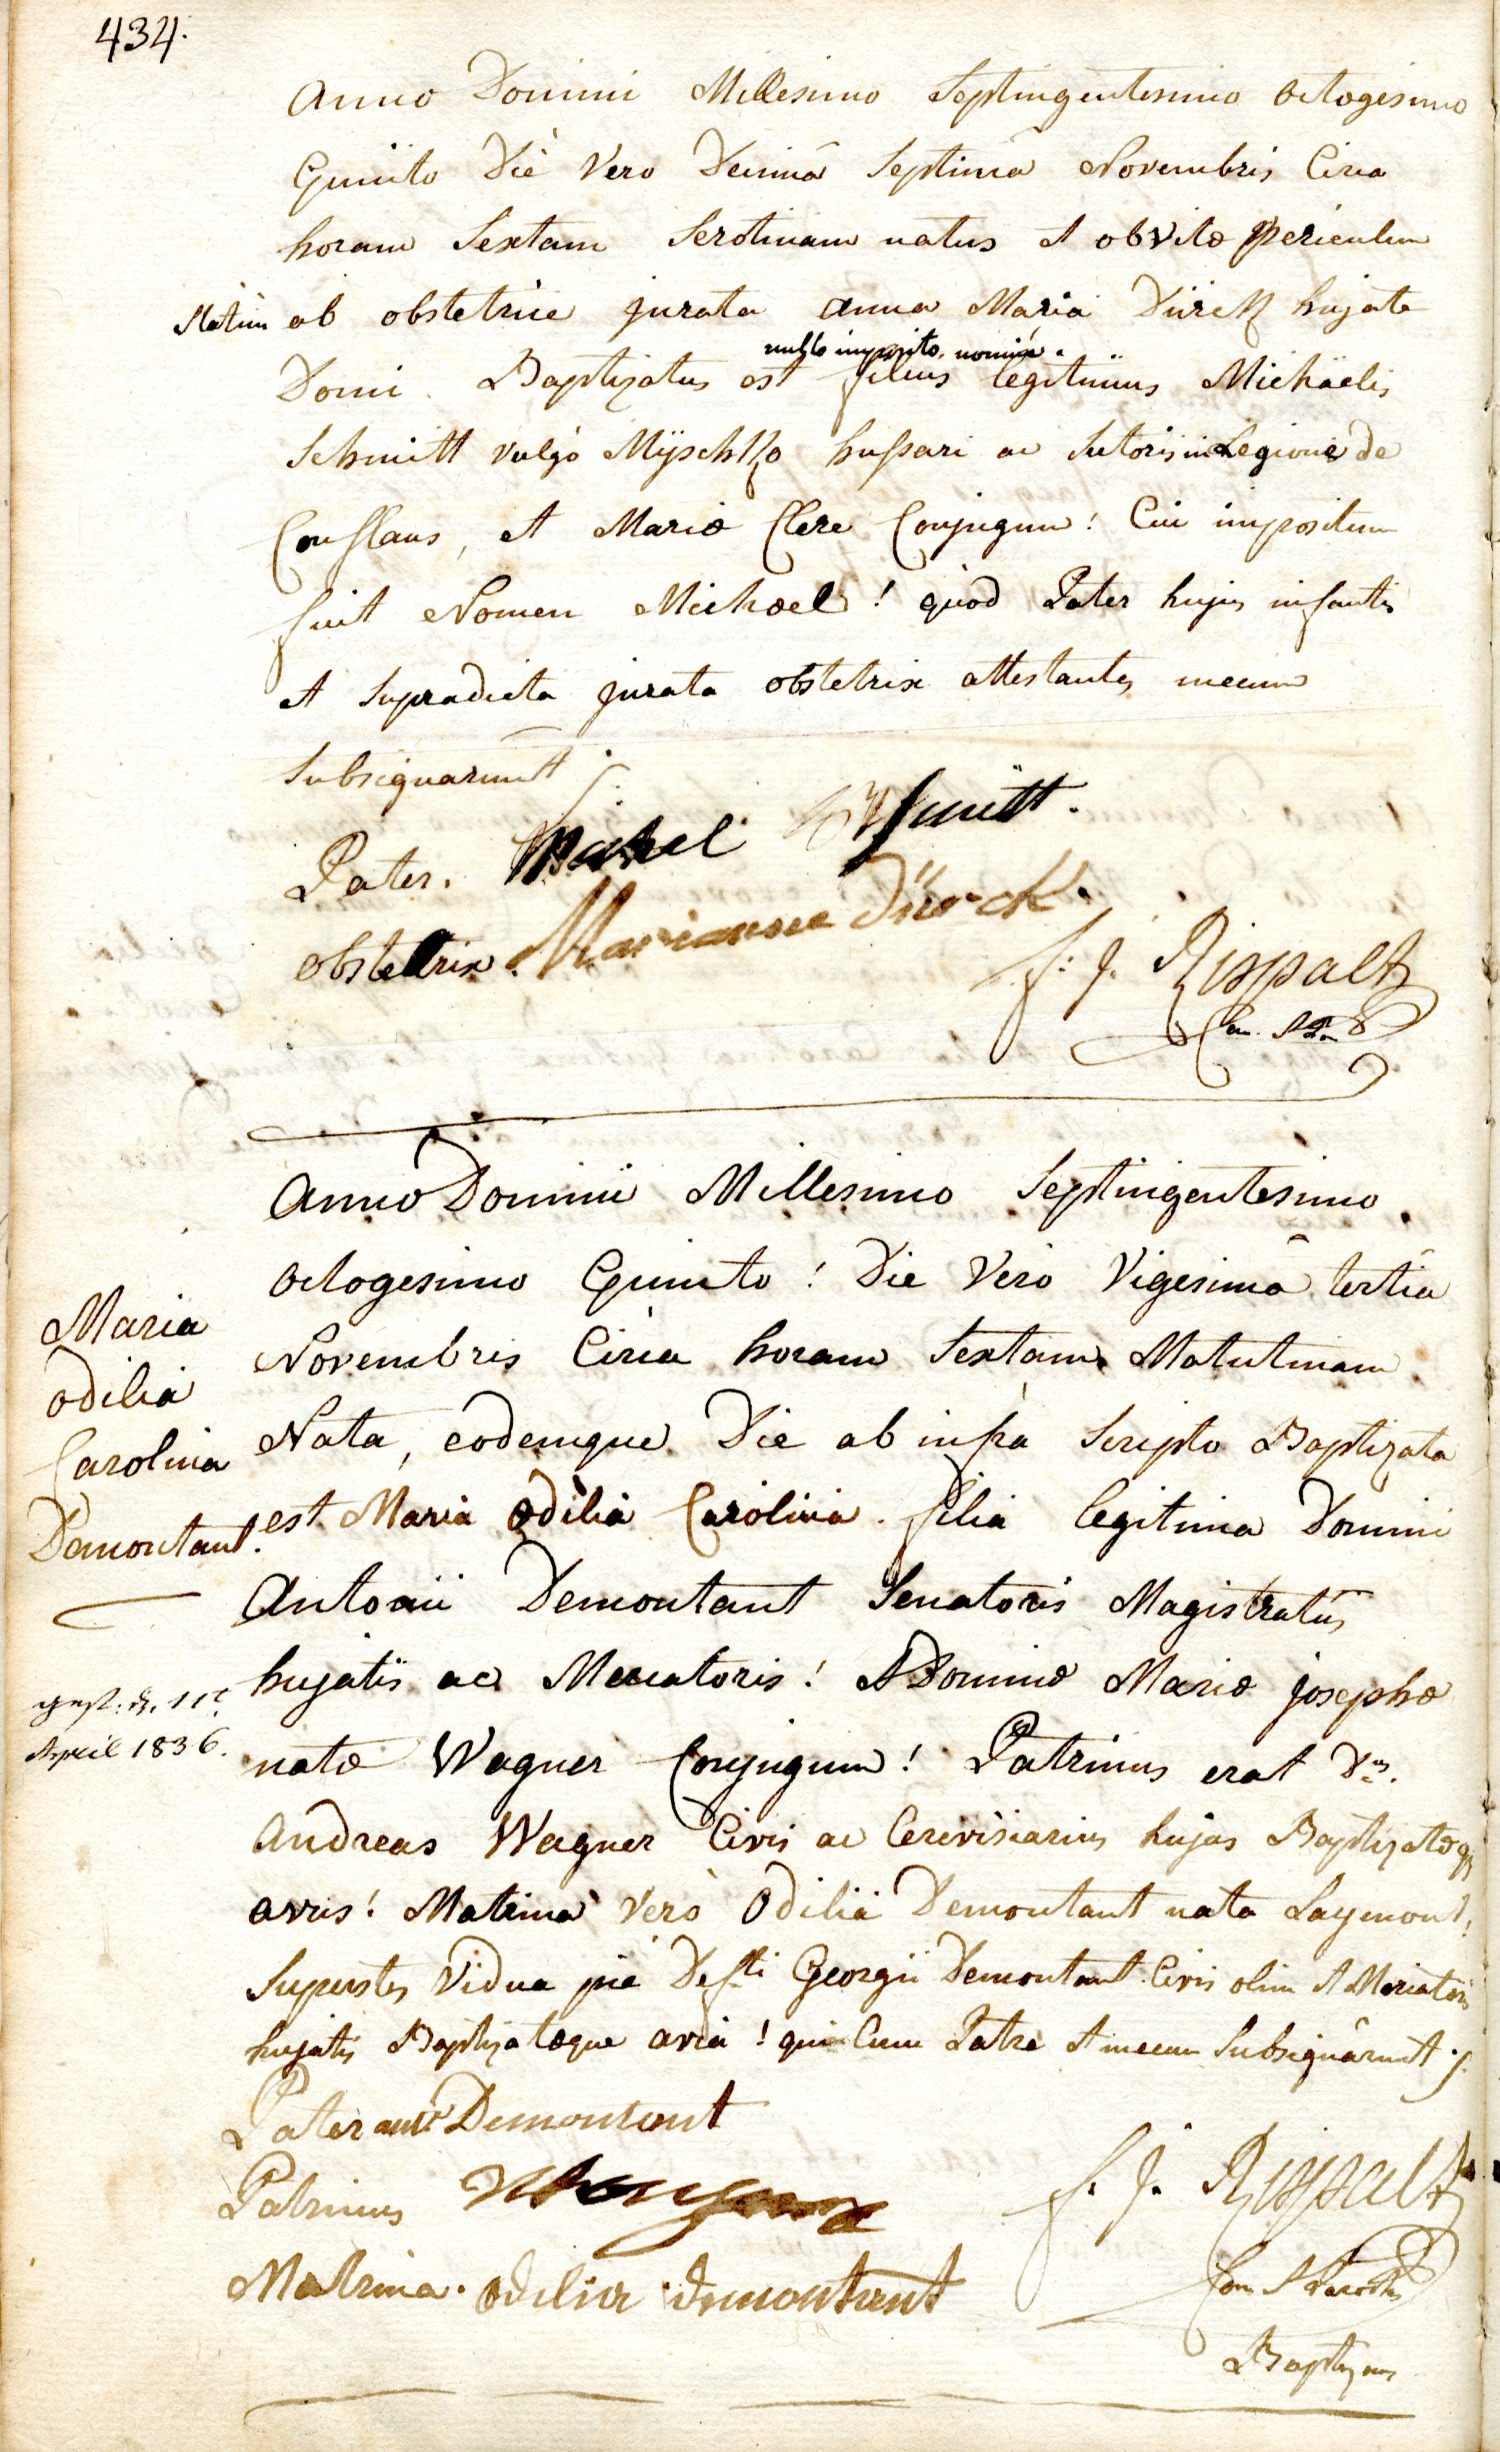 434.
Anno Domini Millesimo Septingentesimo octogesimo
Quinto Die Vero Decimâ Septimâ Novembris Circa
horam Sextam Serotinam natus et ob vitæ periculum
statim ab obstetrice jurata Anna Maria Dürck hujate
nullo imposito nomine.
Domi Baptizatus est filius legitimus Michäelis
Schmitt vulgò Mÿschko hussari ac Sutoris in Legione de
Conflans, et Mariæ Clere Conjugum! Cui impositum
fuit Nomen Michael! quod Pater hujus infantis
et Supradicta jurata obstetrix attestantes mecum
Subsignarunt
Pater. Michel Schmitt.
obstetrix. Marianna Dürck.
f. j. Rispalt
Can. &
Anno Domini Millesimo Septingentesimo
octogesimo Quinto! Die Vero Vigesimâ tertiâ
Novembris Circa horam Sextam Matutinam
Nata, eodemque Die ab infra Scripto Baptizata
est Maria Odilia Carolina. filia legitima Domini
Antonii Demontant Senatoris Magistratûs
hujatis ac Mercatoris! et Dominæ Mariæ Josephæ
natæ Wagner Conjugum! Patrinus erat Dnus.
Andreas Wagner Civis ac Cerevisiarius hujas Baptizatæq
avus! Matrina verò Odilia Demontant nata Laymont,
Superstes Vidua piè Defti Georgii Demontant Civis olim et Mercatoris
hujatis Baptizatæque avia! qui Cum Patre et mecum Subsignârunt
Maria
Odilia
Carolina
Demontant.
gest. d. 11t
April 1836.
Pater ant Demontant
Patrinus
Matrina. Odilia demontant
f. j. Rispalt
Can. &
Baptizans